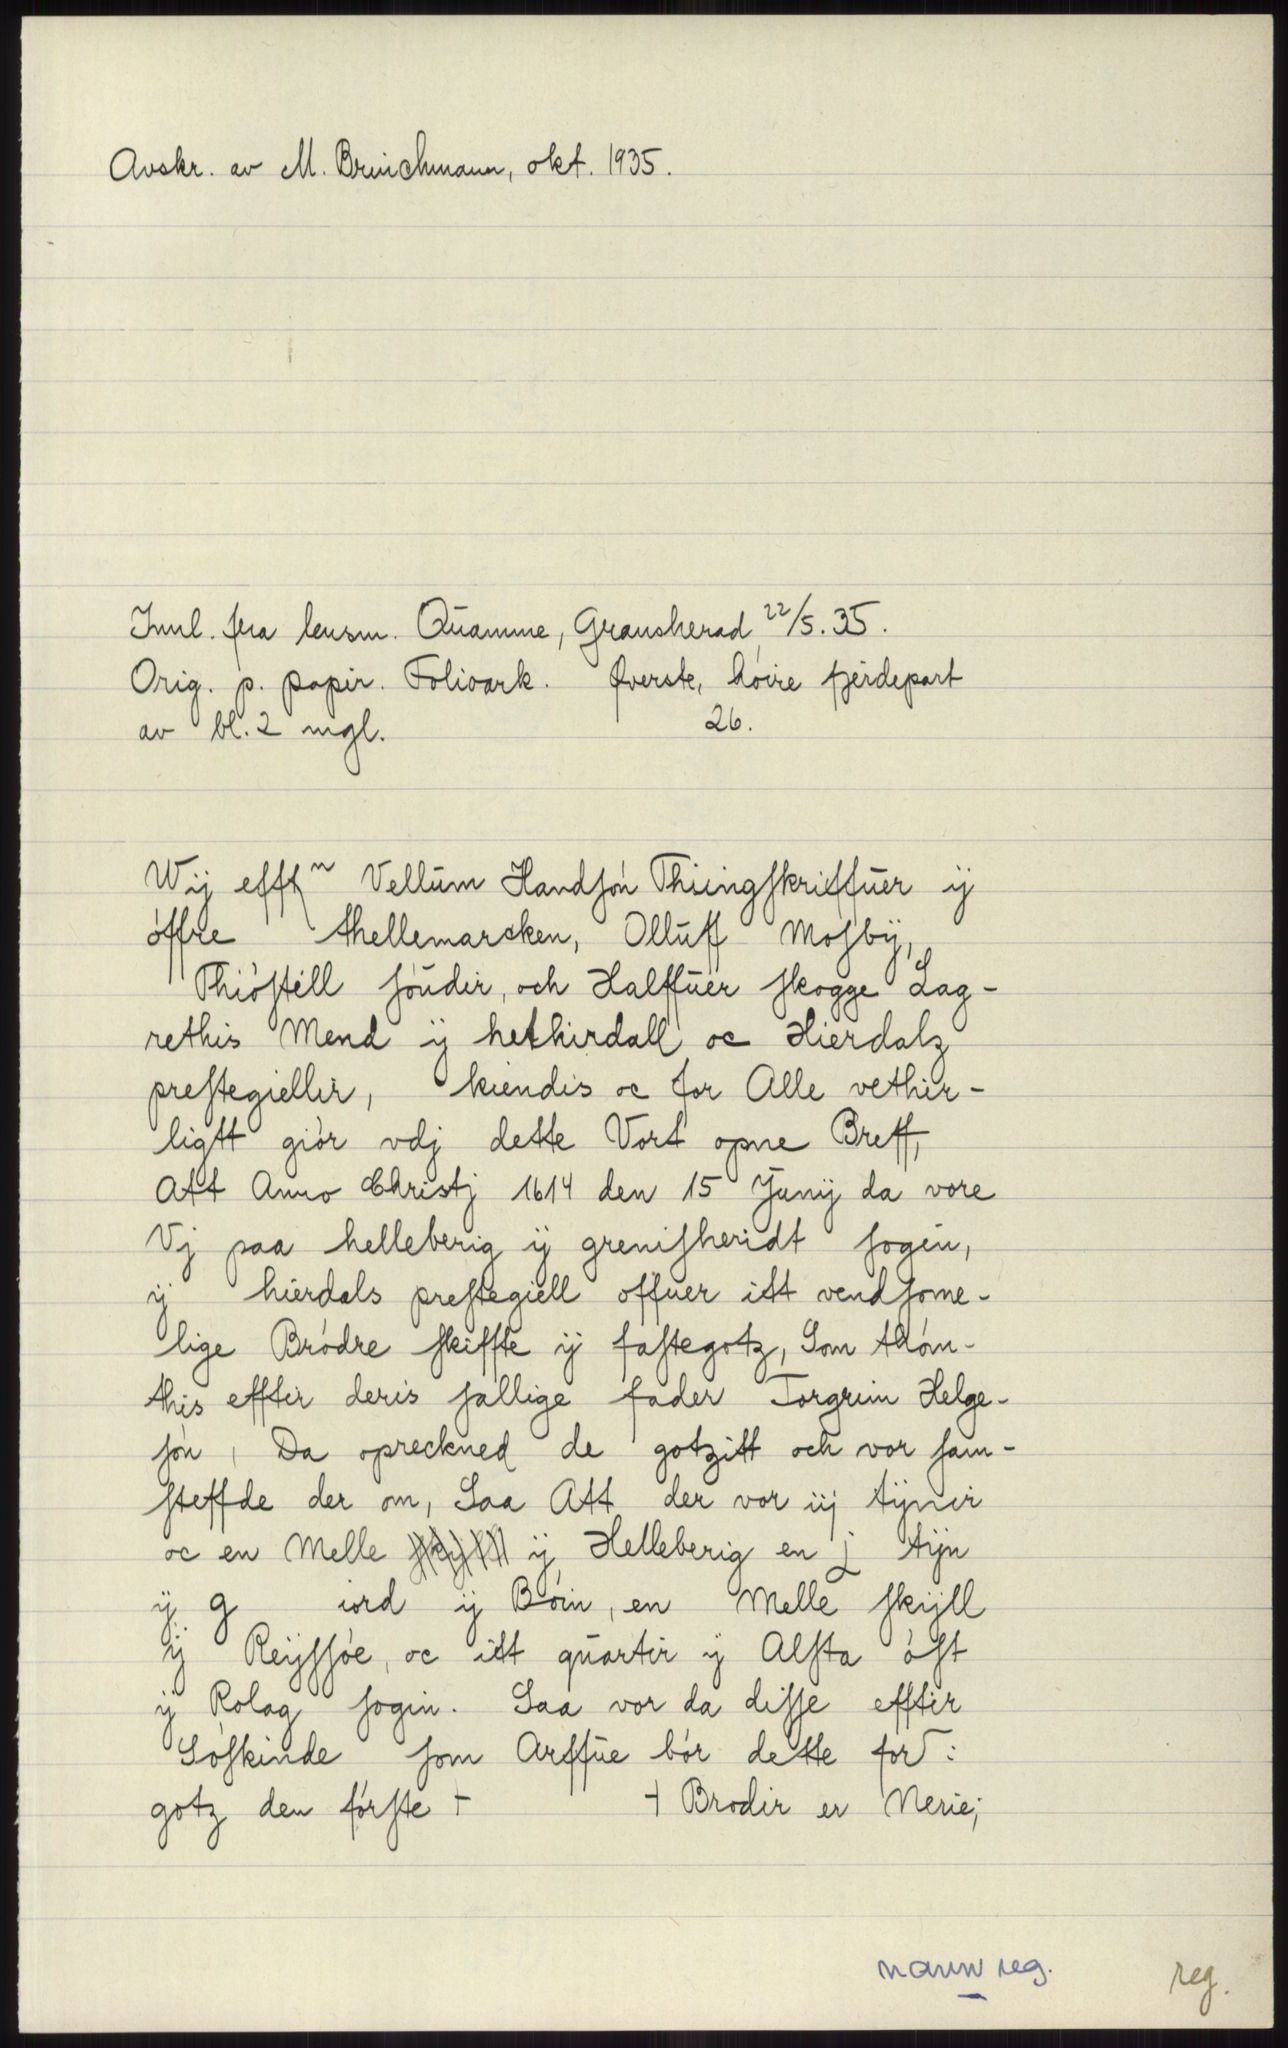 Avskr. av M. Brinchmann, okt. 1935.
Innl. fra lensm. Quamme, Gransherad 22/5. 35.
Orig. p. papir. Folioark. Øverste, høire fjerdepart
av bl. 2 mgl. 26.
Wij efft n Vellŭm Handsón Thiingskriffŭer ij
óffre thellemarcken, Ollŭff Mosbÿ,
Thióstéll sóŭdir, och Halffŭer skogge Lag-
rethis Mend ij hethirdall oc Hierdalz
prestegiellir, kiendis oc for Alle vethir-
ligtt giór vdj dette Vort opne Breff,
Att Anno Christj 1614 den 15 Junij da vore
Vj paa helleberig ij grenisheridt sogen,
ij hierdals prestegiell offuer itt vendsome-
lige Bródre skiffte ij fastegotz, Som thóm-
this efftir deris sallige fader Torgrim Helge-
són, Da opreckned de gotzitt och vor sam-
steffde der om, Saa Att der vor iij tijnir
oc en Melle ij Helleberig en j tijn
ij g iord ij Bóin, en Melle skijll
ij Reijssóe, oc itt qŭartir ij Alsta óst
ij Rolag sogin. Saa vor da disse efftir
Sóskinde som Arffŭe bór dette for:
gotz den fórste + + Brodir er Nerie;
navn reg.
reg.